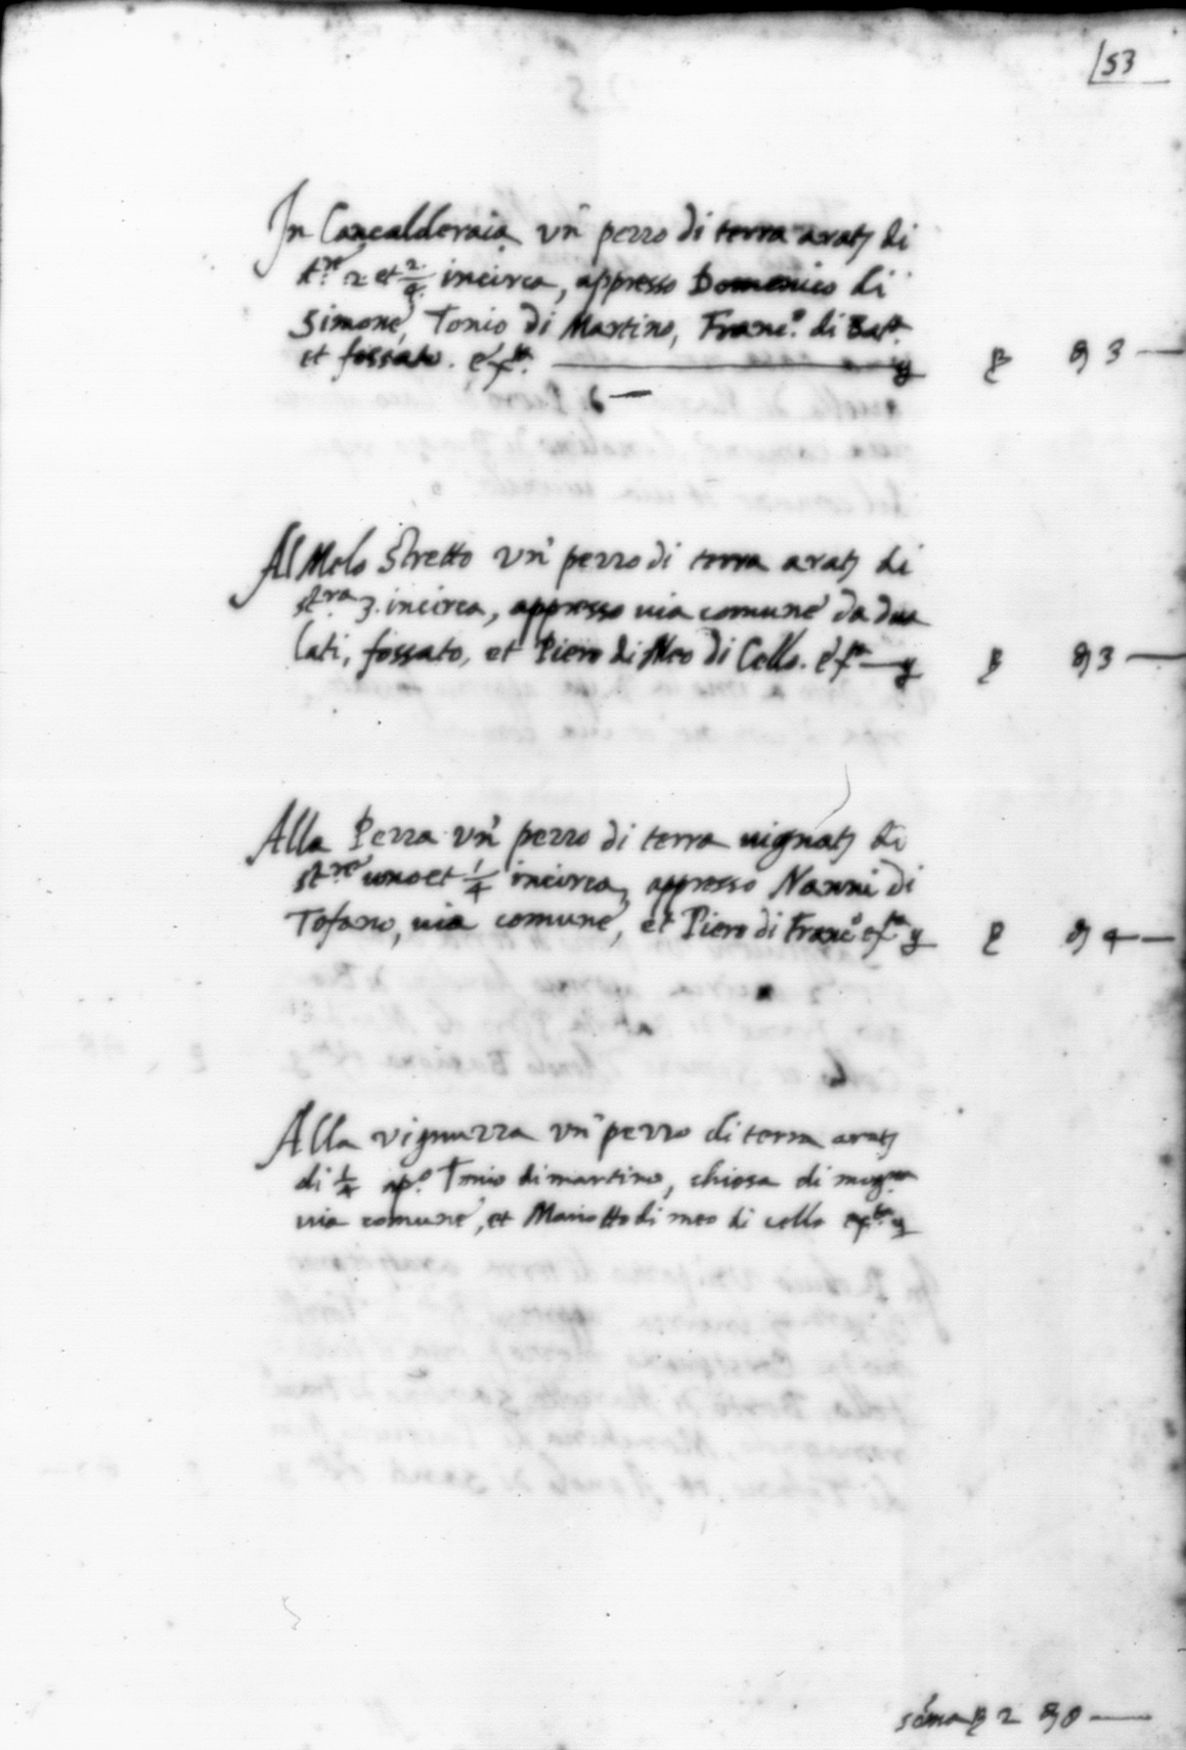 53
In Cancalderaia vn' pezzo di terra aratª di
st.re 2 et 2/4 incirca, appresso Domenico di
Simone, Tonio di Martino, Franc.o di Batt.a
et fossato.
6 —
3 —
Al Melo Stretto vn' pezzo di terra aratª di
st.ra 3. incirca, appresso uia comune da dua
lati, fossato, et Piero di Meo di Cello.
3 —
Alla Pezza vn' pezzo di terra uignatª di
st.re uno et 1/4 incirca, appresso Nanni di
Tofano, uia comune, et Piero di Franc.o
4 —
Alla vignuzza vn' pezzo di terra aratª
di 1/4 ap.o Tonio di martino, chiesa di
uia comune, et Mariotto di meo di cello
sōma 2 8 —